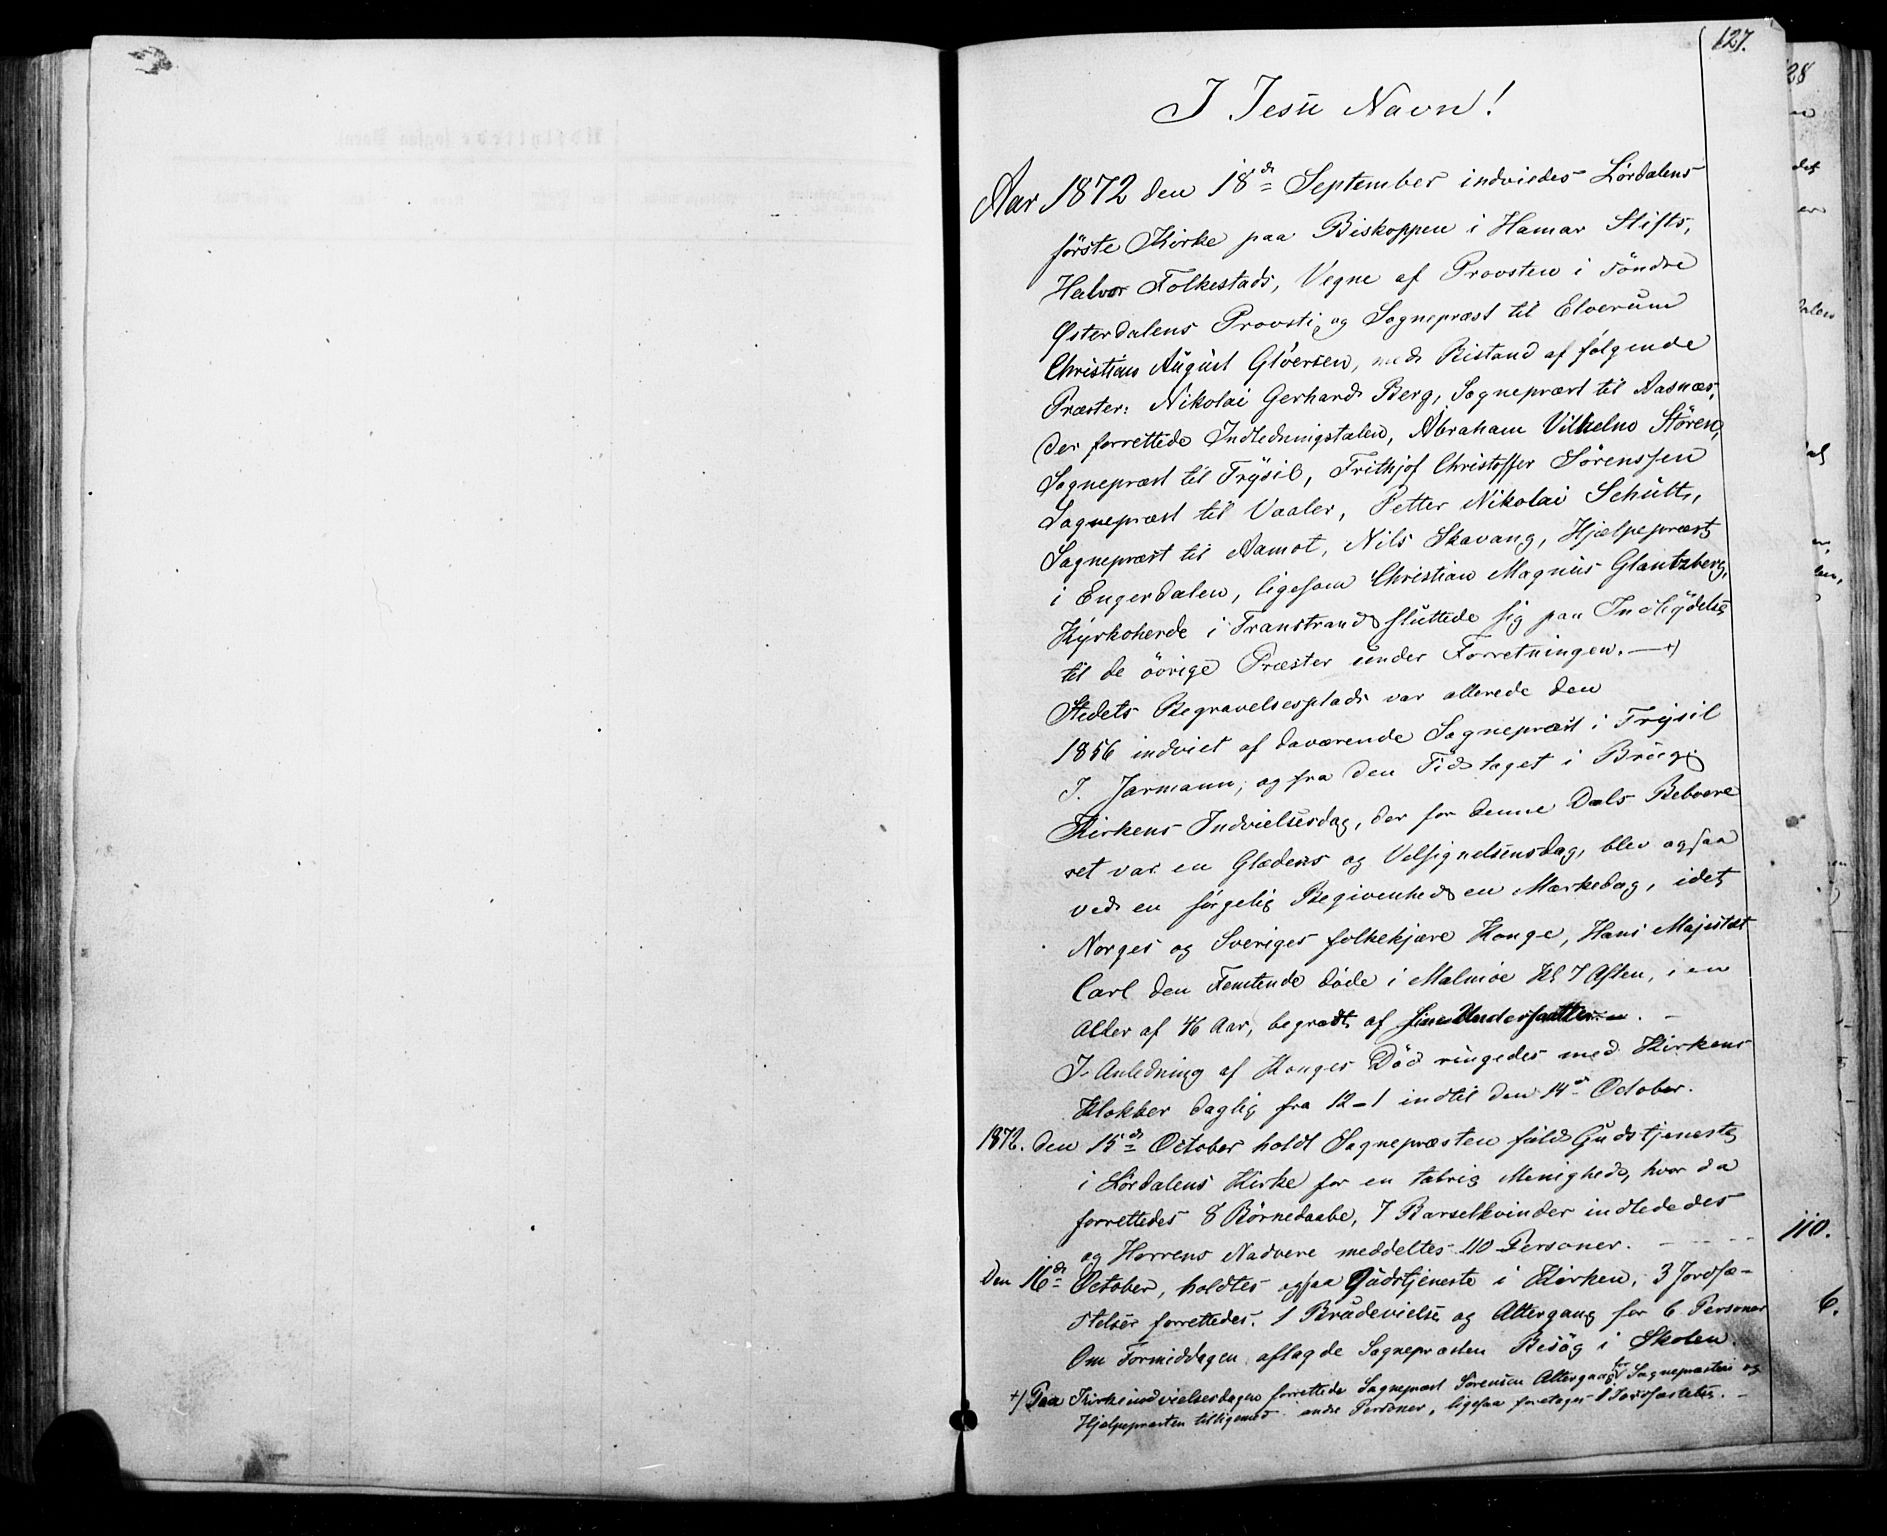 127.
I Jesu Navn!
Aar 1872 den 18de September indviedes Lørdalens
første Kirke paa Biskoppen i Hamar Stifts,
Halvor Folkestads, Vegne af Provsten i søndre
Østerdalens Provsti og Sognepræst til Elverum
Christian August Gløersen, med Bistand af følgende
Præster: Nikolai Gerhard Berg, Sognepræst til Aasnæs,
der forrettede Indledningstalen, Abraham Vilhelm Støren,
Sognepræst til Trysil, Frithjof Christoffer Sørenssen
Sognepræst til Vaaler, Petter Nikolai Schütt,
Sognepræst til Aamot, Nils Skavang, Hjælpepræst
i Engerdalen, ligesom Christian Magnus Glantzberg,
Kyrkoherde i Transtrand sluttede sig paa Indbydelse
til de øvrige Præster under Forretningen. — +)
Stedets Begravelsesplads var allerede den
1856 indviet af daværende Sognepræst i Trysil
J. Jarmann, og fra den Tid taget i Brug.
Kirkens Indvielsesdag, der for denne Dals Beboere
ret var en Glædens og Velsignelsensdag, blev ogsaa
ved en sørgelig Begivenhed en Mærkedag, idet
Norges og Sveriges folkekjære Konge, Hans Majestæt
Carl den Femtende døde i Malmøe Kl 7 Aften, i en
Alder af 46 Aar, begrædt af sine Undersaatter. —
I Anledning af Konges Død ringedes med Kirkens
Klokker daglig fra 12–1 indtil den 14de October.
1872. Den 15de October holdt Sognepræsten fuld Gudstjeneste
i Lørdalens Kirke for en talrig Menighed, hvor da
forrettedes 8 Børnedaabe, 7 Barselkvinder indledes
og Herrens Nadvere meddeltes 110 Personer. - - - - - 110.
Den 16de October, holdtes ogsaa Gudstjeneste i Kirken, 3 Jordfæ-
stelser forrettedes. 1 Brudevielse og Altergang for 6 Personer 6.
Om Formiddagen aflagde Sognepræsten Besøg i Skolen.
+) Paa Kirkeindvielsesdagen forrettede Sognepræst Sørensen Altergang for Sognepræsten og
Hjælpepræsten tilligemed andre Personer, ligesaa foretoges 1 Jordfæstelse. –